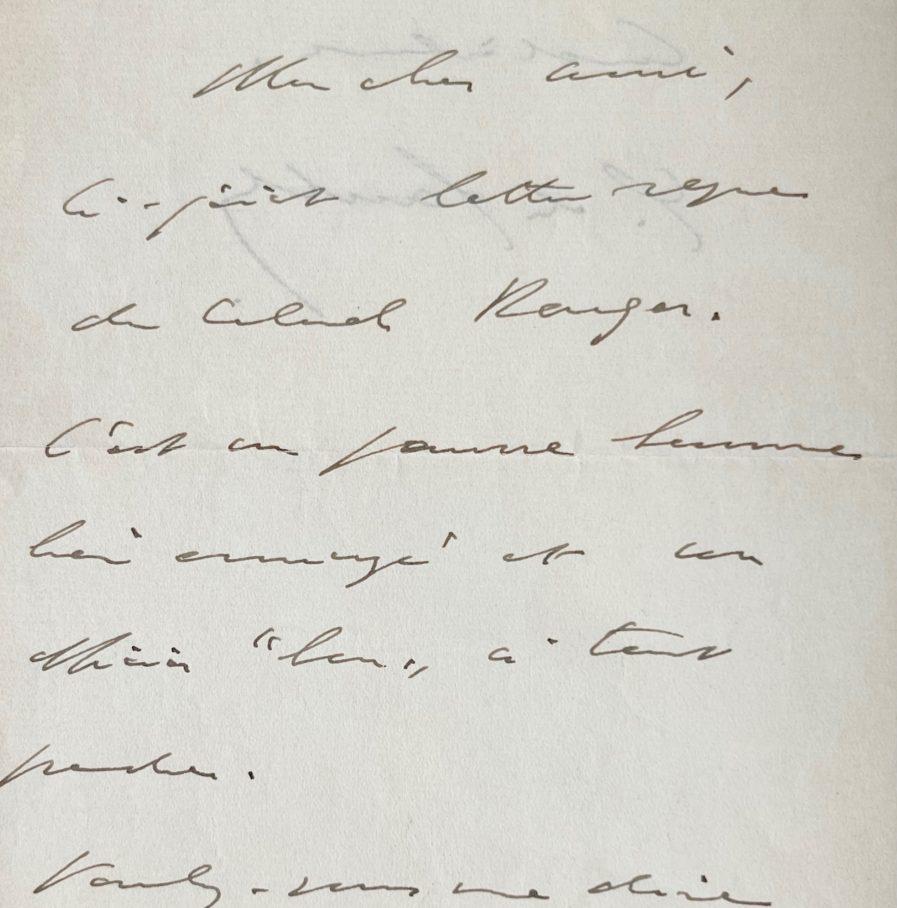 Mon cher ami,
Ci-joint lettre reçue
du Colonel Rouger.
C'est un pauvre homme
bien ennuyé et un
"bon" à tout
Voulez-vous me dire